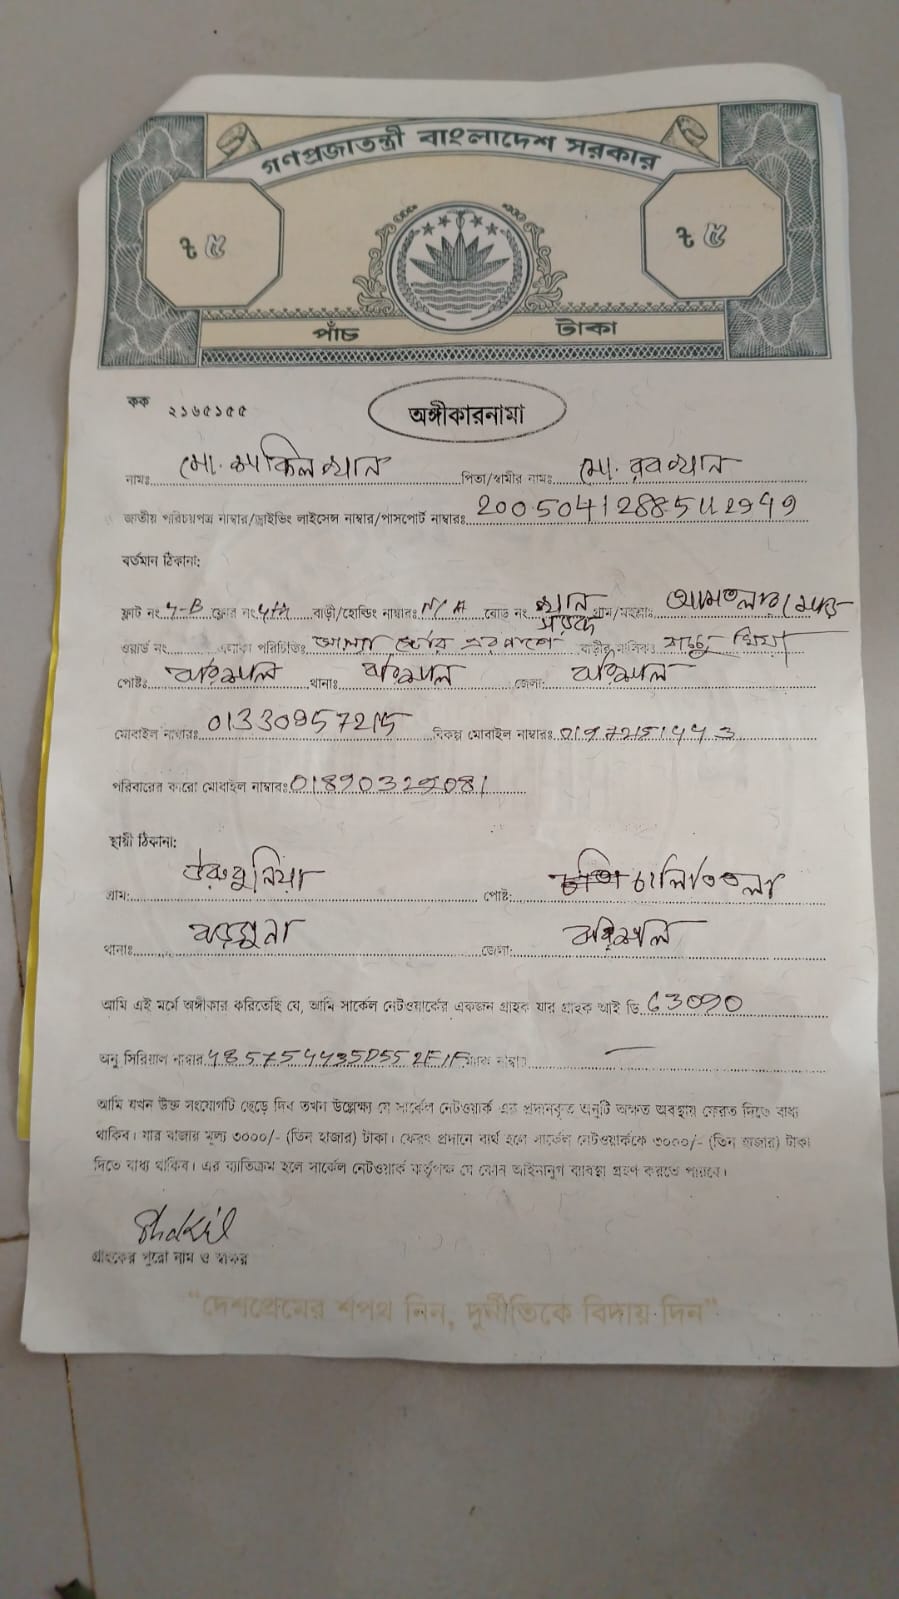 গণপ্রজাতন্ত্রী বাংলাদেশ সরকার
৳ ৫ ৳ ৫
পাঁচ টাকা
কক ২১৬৫১৫৫
অঙ্গীকারনামা
নামঃ মো. শাকিল খান পিতা/স্বামীর নামঃ মো. রব খান
জাতীয় পরিচয়পত্র নাম্বার/ড্রাইভিং লাইসেন্স নাম্বার/পাসপোর্ট নাম্বারঃ
বর্তমান ঠিকানা:
ফ্লাট নং 4-B ফ্লোর নং 4th বাড়ী/হোল্ডিং নাম্বারঃ N/A রোড নং খান সড়ক গ্রাম/মহল্লাঃ আমতলার মোড়
ওয়ার্ড নং এলাকা পরিচিতিঃ স্টোর এর পাশে বাড়ীর মালিকঃ বাচ্চু মিয়া
পোষ্টঃ বরিশাল থানাঃ বরিশাল জেলা: বরিশাল
মোবাইল নাম্বারঃ 01330957215 বিকল্প মোবাইল নাম্বারঃ
পরিবারের কারো মোবাইল নাম্বারঃ
স্থায়ী ঠিকানা:
গ্রাম: পোষ্ট: চালিতাতলা
থানাঃ বরগুনা জেলা: বরিশাল
আমি এই মর্মে অঙ্গীকার করিতেছি যে, আমি সার্কেল নেটওয়ার্কের একজন গ্রাহক যার গ্রাহক আই ডি.
অনু সিরিয়াল নাম্বার 485754435D552F1F ম্যাক নাম্বার
আমি যখন উক্ত সংযোগটি ছেড়ে দিব তখন উল্লেক্ষ্য যে সার্কেল নেটওয়ার্ক এর প্রদানকৃত অনুটি অক্ষত অবস্থায় ফেরত দিতে বাধ্য
থাকিব। যার বাজার মূল্য ৩০০০/- (তিন হাজার) টাকা। ফেরৎ প্রদানে ব্যর্থ হলে সার্কেল নেটওয়ার্ককে ৩০০০/- (তিন হাজার) টাকা
দিতে বাধ্য থাকিব। এর ব্যতিক্রম হলে সার্কেল নেটওয়ার্ক কর্তৃপক্ষ যে কোন আইনানুগ ব্যবস্থা গ্রহণ করতে পারবে।
Shakil
গ্রাহকের পুরো নাম ও স্বাক্ষর
"দেশপ্রেমের শপথ নিন, দুর্নীতিকে বিদায় দিন"